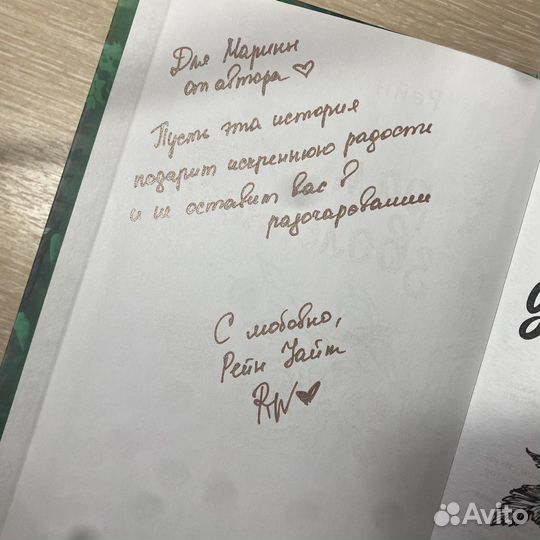 Для Марины
от автора ♡
Пусть эта история
подарит искреннюю радость
и не оставит вас в
разочаровании
С любовью,
Рейн Уайт
RW♥
Avito